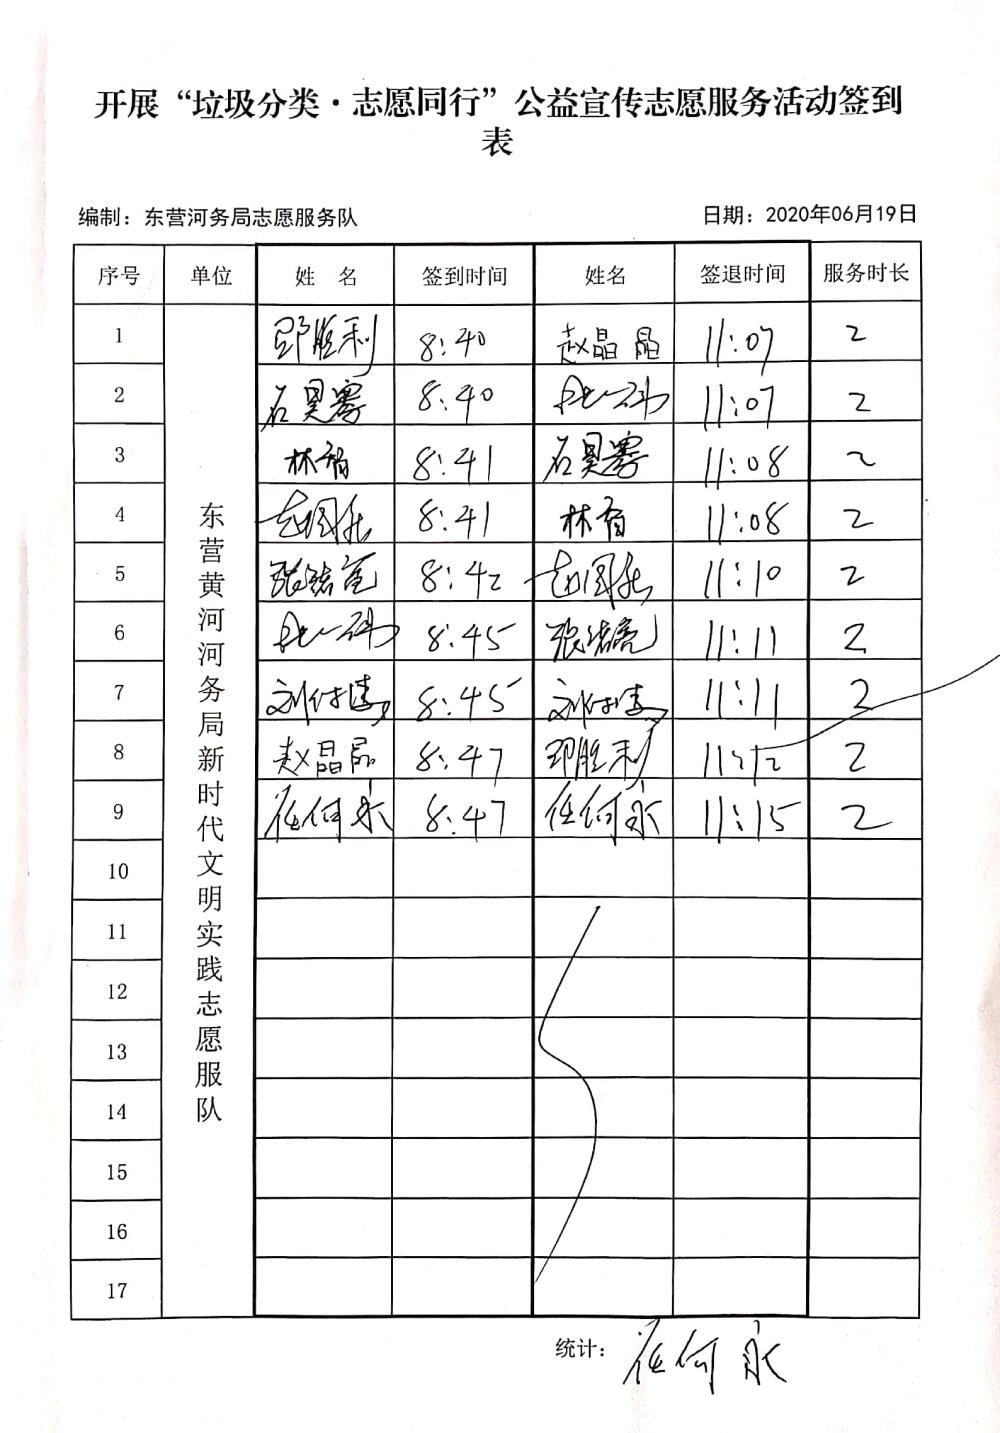 开展“垃圾分类·志愿同行”公益宣传志愿服务活动签到
表
编制：东营河务局志愿服务队 日期：2020年06月19日
序号 单位 姓 名 签到时间 姓名 签退时间 服务时长
东营黄河河务局新时代文明实践志愿服队
1 邵胜利 8:40 赵晶晶 11:07 2
2 石昊骞 8:40 11:07 2
3 林 8:41 石昊骞 11:08 2
4 赵 8:41 林 11:08 2
5 张 8:42 赵 11:10 2
6 8:45 张 11:11 2
7 刘付 8:45 刘付 11:11 2
8 赵晶晶 8:47 邵胜利 11:12 2
9 任何永 8:47 任何永 11:15 2
10
11
12
13
14
15
16
17
统计：任何永